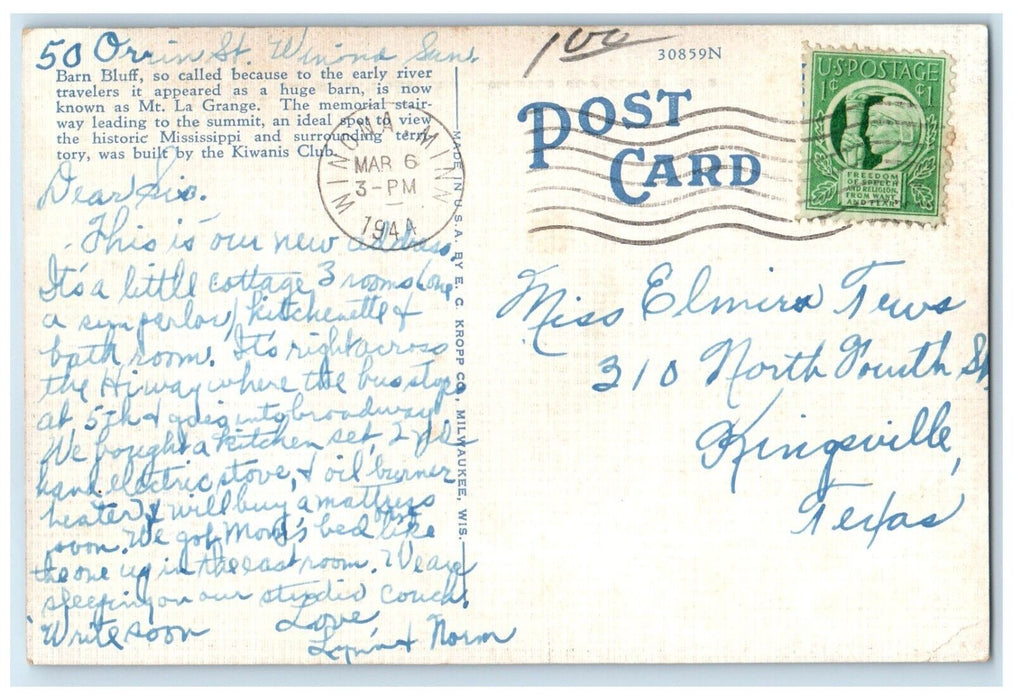 50 Orrin St. Winona
Barn Bluff, so called because to the early river
travelers it appeared as a huge barn, is now
known as Mt. La Grange. The memorial stair-
way leading to the summit, an ideal spot to view
the historic Mississippi and surrounding terri-
tory, was built by the Kiwanis Club.
Dear Sis.
This is our new address.
It's a little cottage 3 rooms (one
a sun parlor) kitchenette &
bath room. It's right across
the Hiway where the bus stops
at 5th & goes into broadway
We bought a kitchen set, 2nd
hand electric stove, & oil burner
heater, & will buy a mattress
soon. We got Mom's bed like
the one up in the east room. We are
sleeping on our studio couch.
Write soon
Love,
& Norm
MADE IN U.S.A. BY E. C. KROPP CO., MILWAUKEE, WIS.
WINONA MINN
MAR 6
3-PM
1944
100
30859N
POST
CARD
U.S. POSTAGE
1¢ ¢1
FREEDOM
OF SPEECH
AND RELIGION,
FROM WANT
AND FEAR
Miss Elmira Tews
310 North Fourth St
Kingsville,
Texas